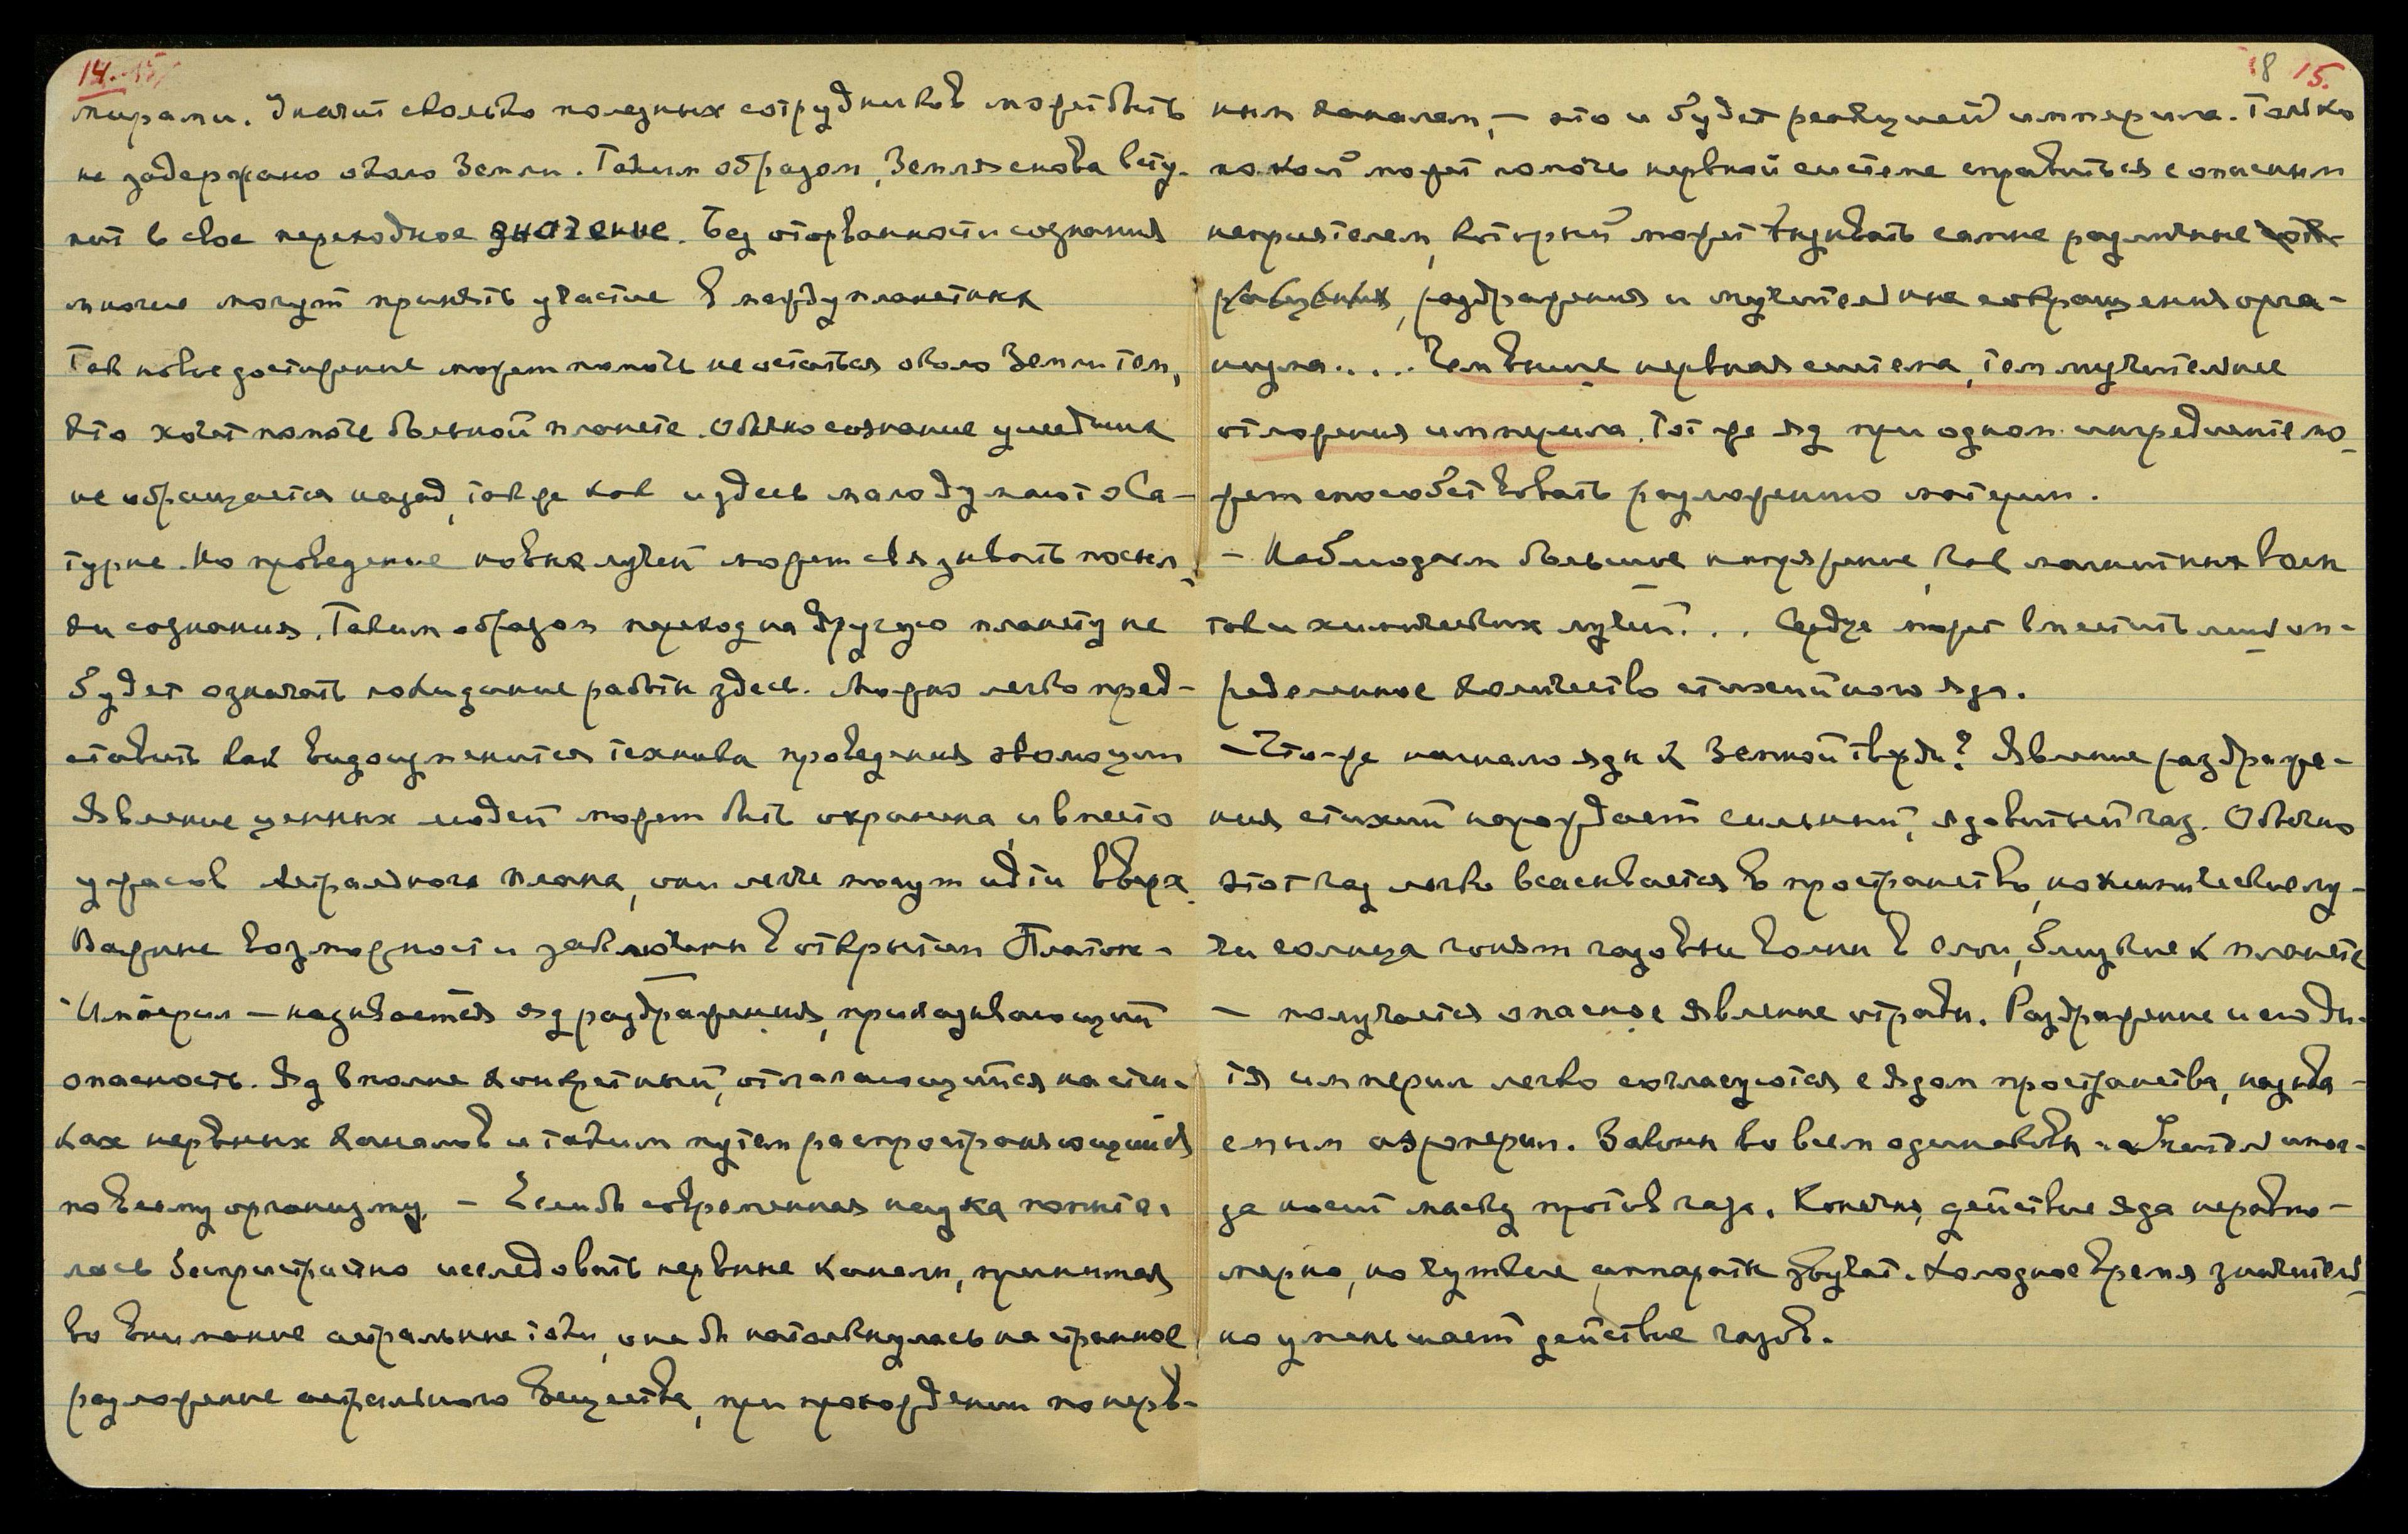 14.
мирами. Значит сколько полезных сотрудников может быть
не задержано около Земли. Таким образом, Земля снова всту-
пит в свое переходное значение. Без оторванности сознания
многие могут принять участие в междупланетных
Так новое достижение может помочь не остаться около Земли тем,
кто хочет помочь больной планете. Обычно сознание ушедших
не обращается назад, также как и здесь мало думают о Са-
турне. Но проведение новых лучей может связывать посыл-
ки сознания. Таким образом переход на другую планету не
будет означать покидание работы здесь. Можно легко пред-
ставить как видоизменится техника проведения эволюции
Явление ценных людей может быть охранена, и вместо
ужасов астрального плана, они легче могут идти вверх.
Важные возможности заключены в открытии Платон-
Империл – называется яд раздражения, приказывающий
опасность. Яд вполне конкретный, отлагающийся на стен-
ках нервных каналов и таким путем распространяющийся
по всему организму. – Если бы современная наука попыта-
лась беспристрастно исследовать нервные каналы, принимая
во внимание астральные токи, она бы натолкнулась на странное
разложение астрального вещества, при прохождении по нерв-
8 15.
ным каналам, – это и будет реакцией империла. Только
покой может помочь нервной системе справиться с опасным
неприятелем, который может вызывать самые различные
раздражения и мучительные сокращения орга-
низма..... Чем выше нервная система, тем мучительнее
отложения империла. Тот же яд при одном ингредиенте мо-
жет способствовать разложению материи.
– Наблюдаем большое напряжение, как магнитных волн
так и химических лучей... Сердце может вместить лишь оп-
ределенное количество стихийного яда.
– Что-же нагнало яды к Земной тверди? Явление раздраже-
ния стихий порождает сильный, ядовитый газ. Обычно
этот газ легко всасывается в пространство, но химические лу-
чи солнца гонят газовые волны в слои, близкие к планете
– получается опасное явление отравы. Раздражение и его ди-
тя империл легко согласуются с ядом пространства, называ-
емым аэроперил. Законы во всем одинаковы. Учитель иног-
да носит маску против газа. Конечно, действие яда неравно-
мерно, но чуткие аппараты звучат. Холодное время значитель-
но уменьшает действие газов.